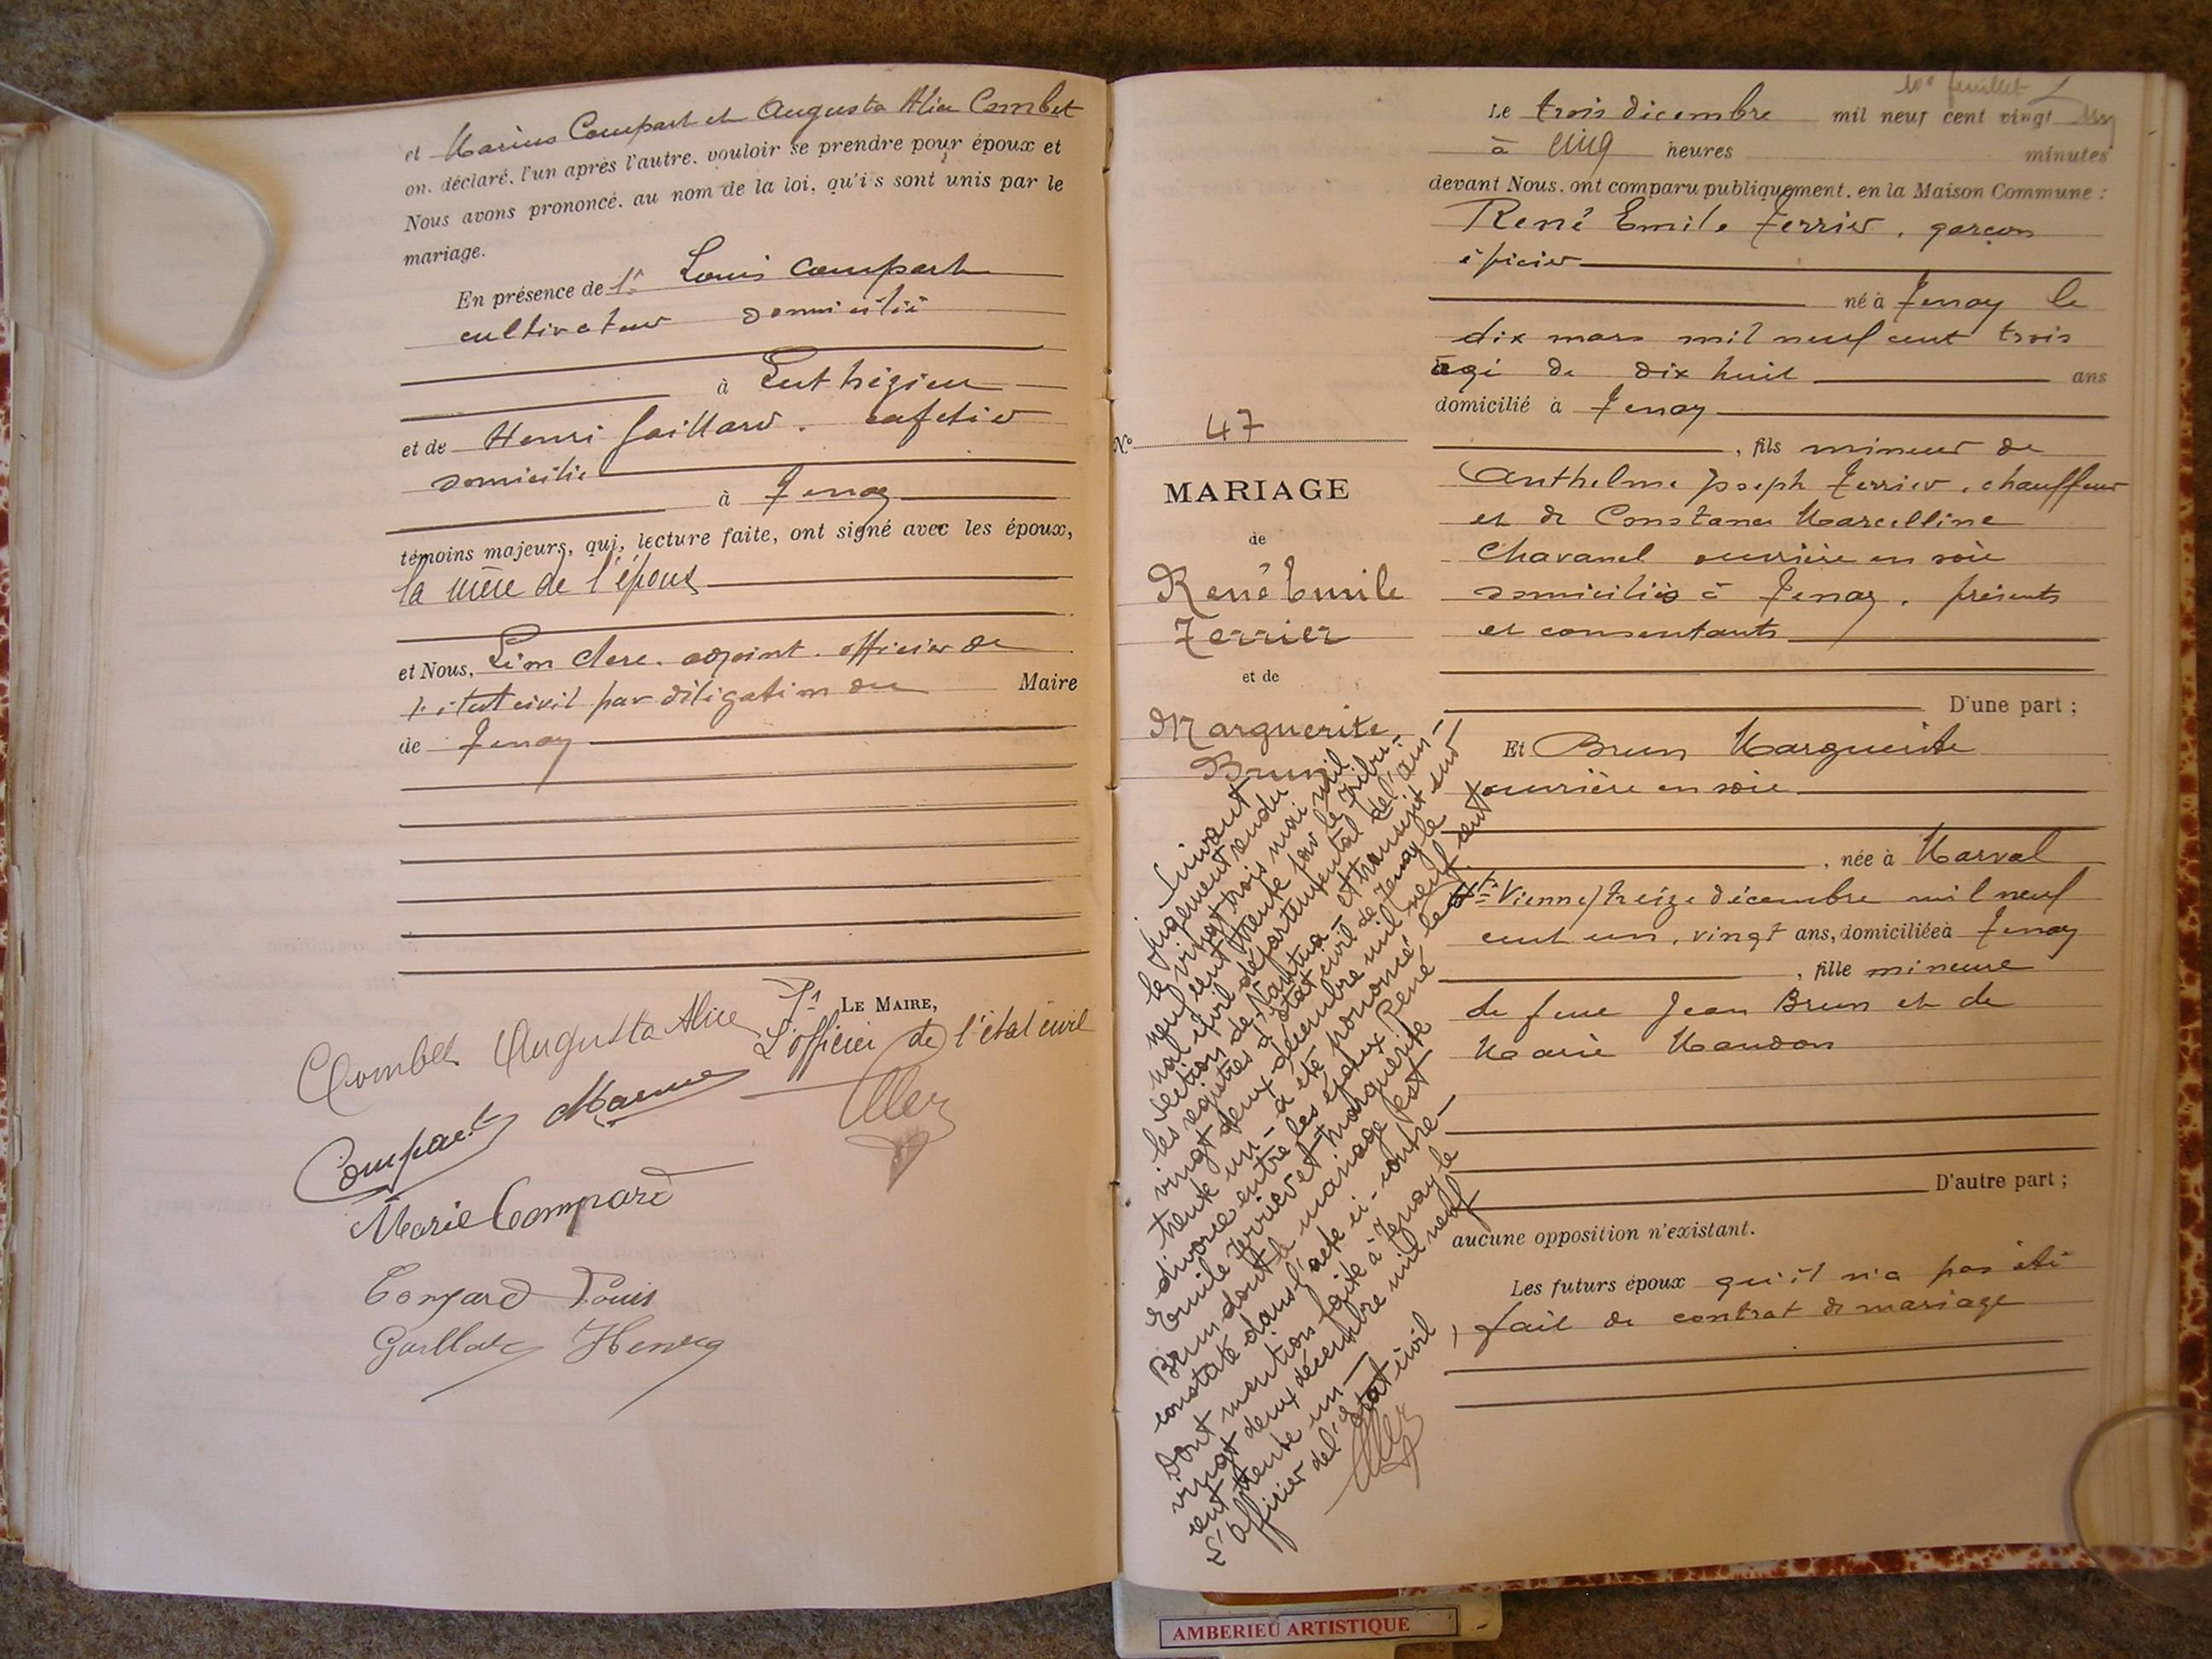 et Marius Compart et Augusta Alice Combet
on. déclaré. l'un après l'autre. vouloir se prendre pour époux et
Nous avons prononcé. au nom de la loi, qu'i s sont unis par le
mariage.
En présence de Louis Compart
cultivateur domicilié
à
et de Henri Gaillard. cafetier
domicilié
à Tenay
témoins majeurs, qui, lecture faite, ont signé avec les époux,
la mère de l'époux
et Nous, Léon Clerc. adjoint. officier de
l'état civil par déligation du Maire
de Tenay
LE MAIRE,
L'officier de l'état civil
Combet Augusta Alice
Compart Marius
Marie Compard
Compard Louis
Gaillard Henry
10e feuillet
Le trois décembre mil neuf cent vingt un
à cinq heures minutes
devant Nous. ont comparu publiquement. en la Maison Commune :
René Emile Terrier, garçon
épicier
né à Tenay le
dix mars mil neuf cent trois
âgé de dix huit ans
domicilié à Tenay
, fils mineur de
Anthelme Joseph Terrier, chauffeur
et de Constance Marcelline
Chavanel ouvrière en soie
domiciliés à Tenay. présents
et consentants
D'une part ;
Et Brun Marguerite
ouvrière en soie
, née à Marval
Hte Vienne) treize décembre mil neuf
cent un, vingt ans, domiciliée à Tenay
, fille mineure
de feue Jean Brun et de
Marie Mandon
D'autre part ;
aucune opposition n'existant.
Les futurs époux qu'il n'a pas été
fait de contrat de mariage
N° 47
MARIAGE
de
René Emile
Terrier
et de
Marguerite
Brun
Suivant
jugement rendu
le vingt trois mai mil
neuf cent trente par le Tribu-
nal civil départemental de l'ain-
section de Nantua- et transcrit sur
les registres d'état civil de Tenay le
vingt deux décembre mil neuf cent
trente un - a été prononcé le
divorce entre les époux René
Emile Terrier et Marguerite
Brun dont le mariage est
constaté dans l'acte ci-contre-
Dont mention faite à Tenay le
vingt deux décembre mil neuf
cent trente un-
L'officier de l'état civil
AMBERIEU ARTISTIQUE